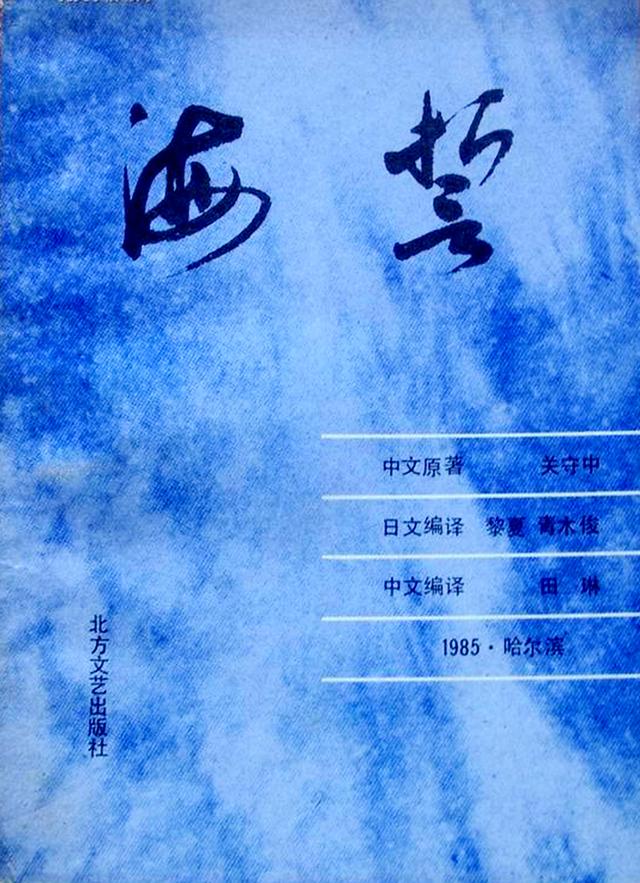 海誓
中文原著 关守中
日文编译 黎夏 青木俊
中文编译 田琳
1985·哈尔滨
北方文艺出版社